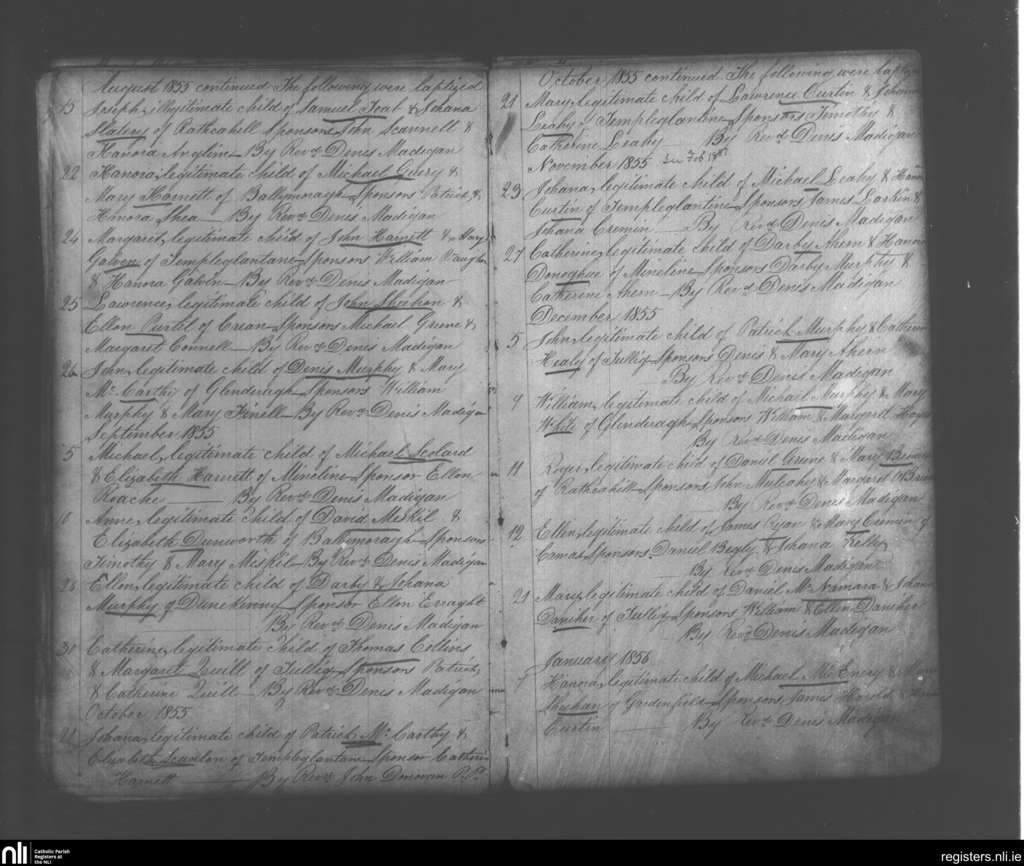 August 1855 continued The following were baptized
15 Joseph, illegitimate child of Samuel Teat & Johana
Slatery of Rathcahill Sponsors John Scannell &
Hanora Anglin By Revd Denis Madigan
22 Hanora, legitimate child of Michael &
Mary Harnett of Ballymonagh Sponsors Patrick &
Honora Shea By Revd Denis Madigan
24 Margaret, legitimate child of John Harnett & Mary
Galvin of Templeglantane Sponsors William Vaughn
& Hanora Galvin By Revd Denis Madigan
25 Lawrence, legitimate child of John Sheehan &
Ellen Curtel of Crean Sponsors Michael Grene &
Margaret Connell By Revd Denis Madigan
26 John, legitimate child of Denis Murphy & Mary
Mc Carthy of Glenderagh Sponsors William
Murphy & Mary By Revd Denis Madigan
September 1855
5 Michael, legitimate child of Michael Scolard
& Elizabeth Harnett of Mineline Sponsor Ellen
Roache By Revd Denis Madigan
10 Anne, legitimate child of David Meskil &
Elizabeth Dunworth of Ballymoragh Sponsors
Timothy & Mary Meskil By Revd Denis Madigan
Ellen, legitimate child of Darby & Johana
Murphy of Dunekenny Sponsor Ellen Enaght
By Revd Denis Madigan
31 Catherine, legitimate child of Thomas Collins
& Margaret Quill of Tullig Sponsors Patrick
& Catherine Quill By Revd Denis Madigan
October 1855
21 Johana, legitimate child of Patrick Mc Carthy &
Elizabeth Scanlon of Templeglantane Sponsor Catherine
Harnett By Revd John Donovan P.P.
October 1855 continued The following were bapti
21 Mary, legitimate child of Lawrence Curtin & Johana
Leahy of Templeglantine Sponsors Timothy &
Catherine Leahy By Revd Denis Madigan
November 1855 See Feb
23 Johana, legitimate child of Michael Leahy & Hanora
Curtin of Templeglantine Sponsors James Larkin &
Johana Cremin By Revd Denis Madigan
27 Catherine, legitimate child of Darby Ahern & Hanora
Donoghue of Mineline Sponsors Darby Murphy &
Catherine Ahern By Revd Denis Madigan
December 1855
5 John, legitimate child of Patrick Murphy & Catherine
Healy of Tullig Sponsors Denis & Mary Ahern
By Revd Denis Madigan
9 William, legitimate child of Michael Murphy & Mary
White of Glenderagh Sponsors William & Margaret
By Revd Denis Madigan
11 Roger, legitimate child of Daniel Grene & Mary
of Rathcahill Sponsors John Mulcahy & Margaret O'Brien
By Revd Denis Madigan
12 Ellen, legitimate child of James Ryan & Mary Cremin of
Camas Sponsors Daniel Begly & Johana Kelly
By Revd Denis Madigan
21 Mary, legitimate child of Daniel Mc Namara & Johana
Danaher of Tullig Sponsors William & Ellen Danaher
By Revd Denis Madigan
January 1856
Hanora, legitimate child of Michael Mc Enery &
Sheehan of Gardenfield Sponsors James Harold &
Curtin By Revd Denis Madigan
nli Catholic Parish
Registers at
the NLI
registers.nli.ie